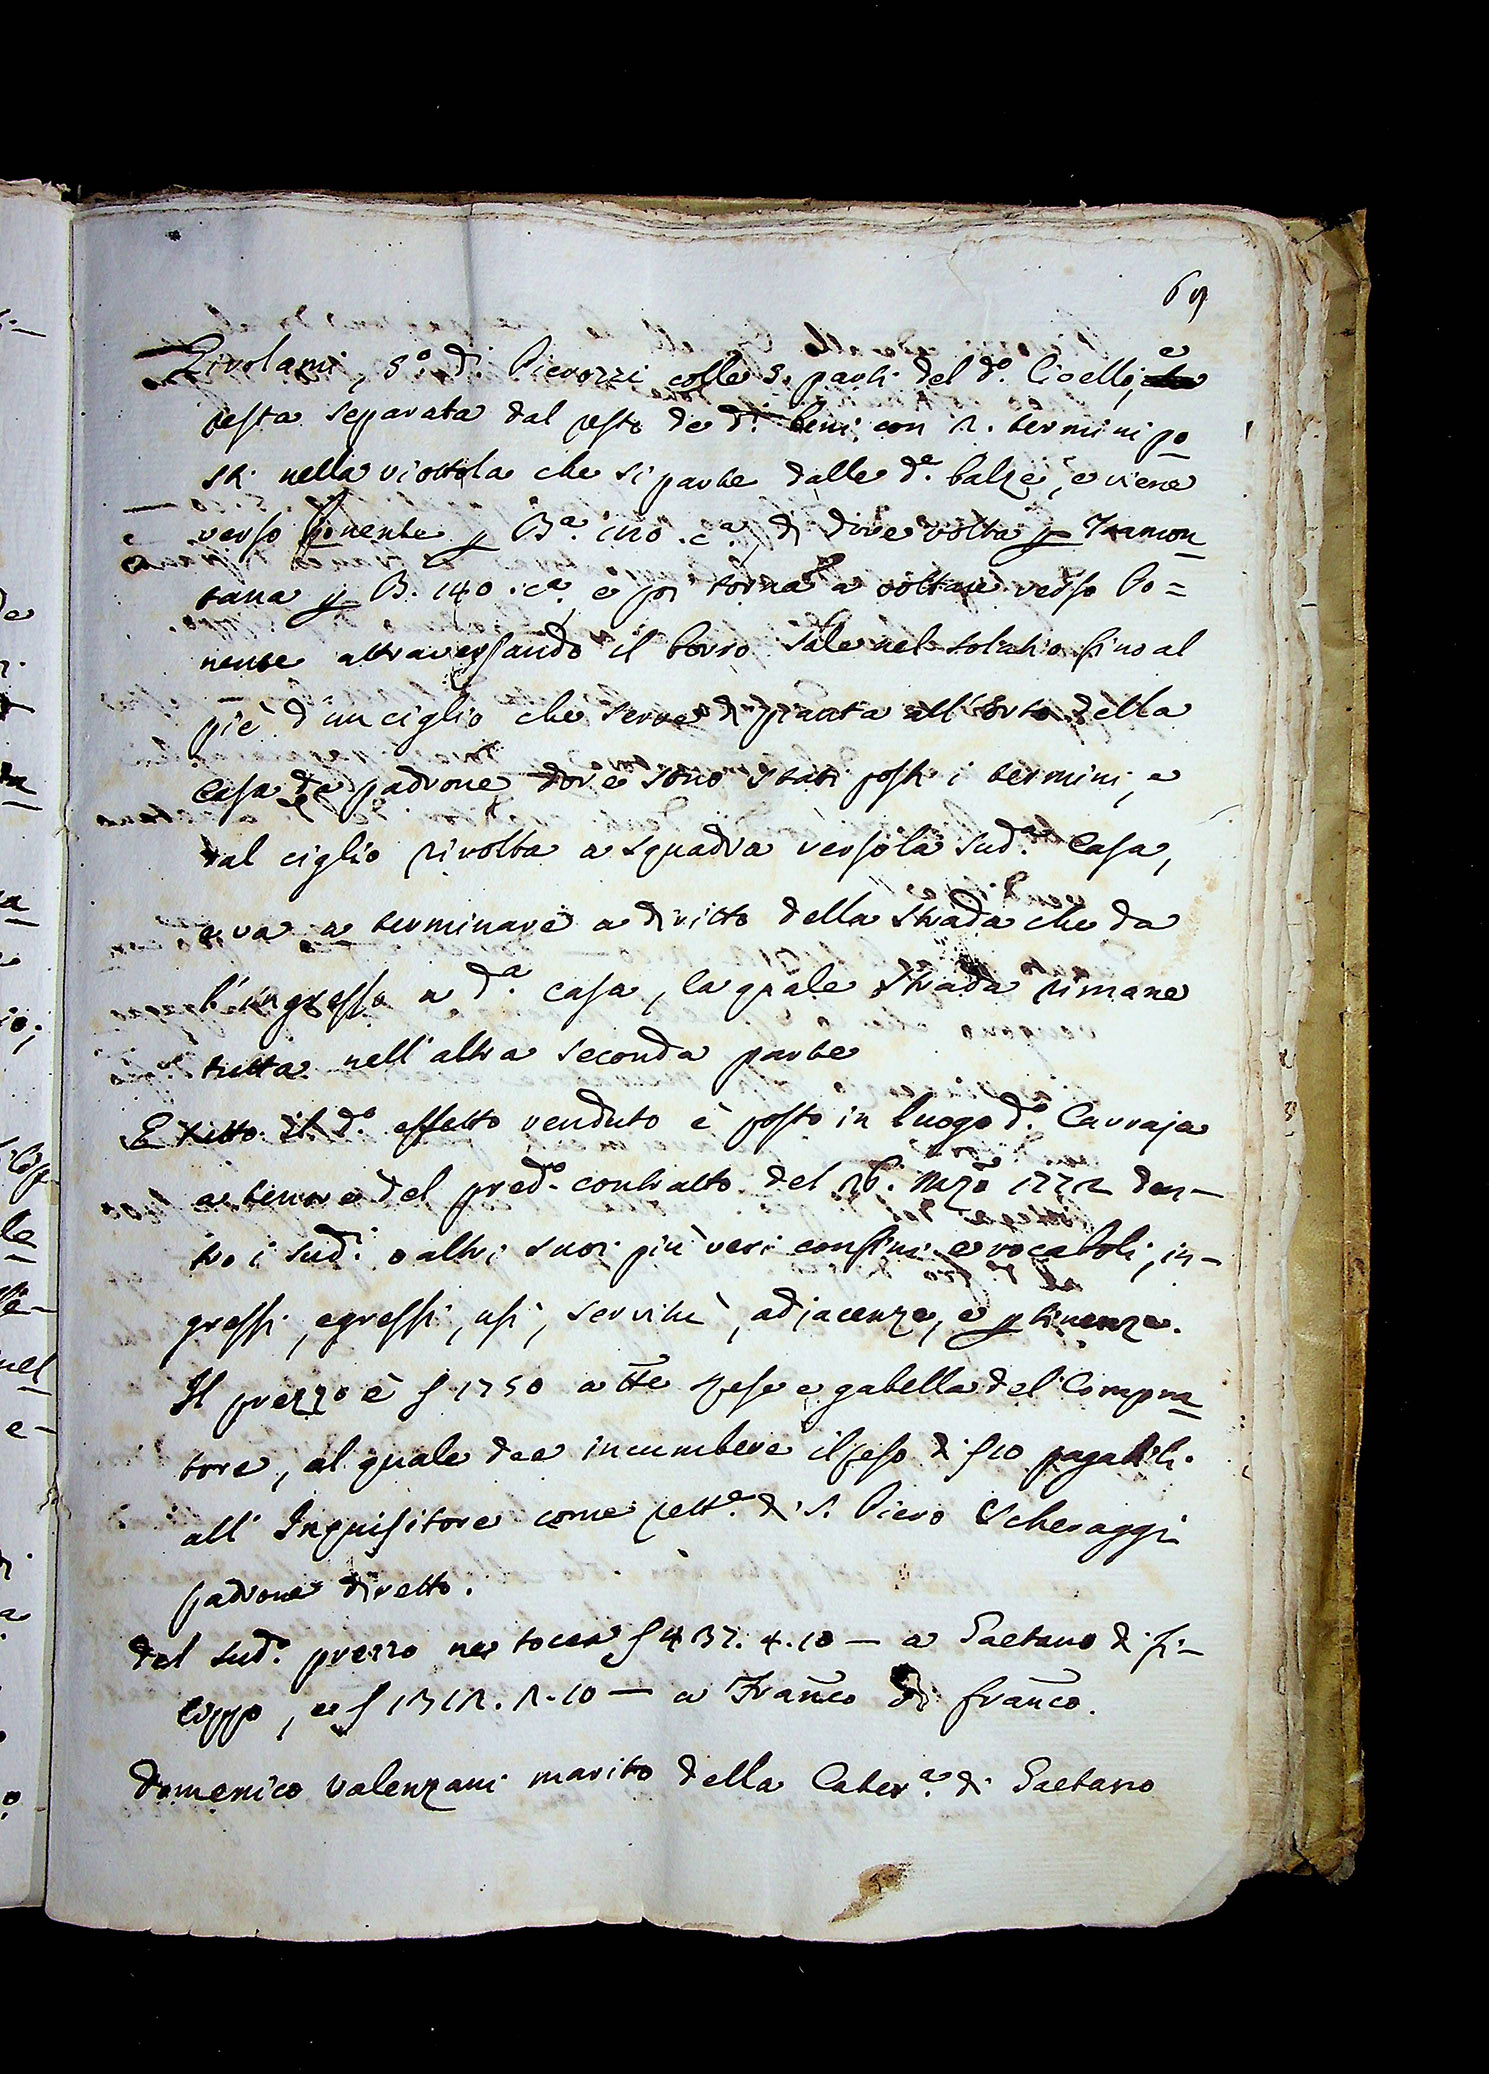 69
Girolami, 3.o d. Pierozzi colle 3. parti del d.o Cioelli, e
resta separata dal resto de d.i beni con 2. termini po
sti nella viottola che si parte dalle d.e balze, e viene
verso ponente p B.a 110. c.a, di dove volta p Tramon
tana p B. 140. c.a e poi torna a voltare verso Po=
nente attraversando il borro sale nel solatio fino al
piè d'un ciglio che serve di pianta all'orto della
Casa del padrone dove sono stati posti i termini, e
tal ciglio rivolta a squadra verso la sud.a Casa,
e va a terminare a diritto della strada che da
l'ingresso a d.a casa, la quale strada rimane
tutta nell'altra seconda parte
E tutto il d.o effetto venduto è posto in luogo d.o Carraja
a tenore del pred.o contratto del 26. Mzo 1772 den-
tro i sud.i o altri suoi più veri confini e vocaboli, in-
gressi, egressi, usi, servitù, adjacenze, e ptinenze.
Il prezzo è f 1750 a tte spese e gabella del Compra
tore, al quale dee incumbere il peso di f 10 pagabili
all'Inquisitore come rett.e di S. Piero Scheraggi
padrone diretto.
del sud.o prezzo ne tocca f 437. 4. 10 — a Gaetano di fi-
lippo, e f 1312. 2. 10 — a Franco di franco.
Domenico Valenzani marito della Cater.a di Gaetano